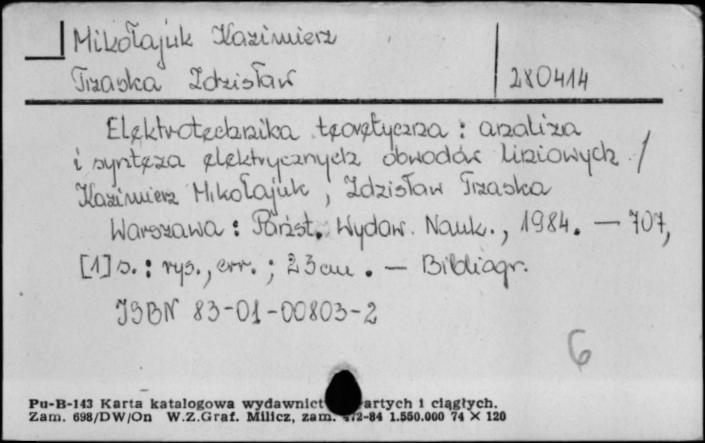 Mikołajuk Kazimierz
Trzaska Zdzisław
280414
Elektrotechnika teoretyczna : analiza
i synteza elektrycznych obwodów liniowych /
Kazimierz Mikołajuk, Zdzisław Trzaska
Warszawa : Państ. Wydaw. Nauk., 1984. — 707,
[1] s. : rys., err. ; 23 cm. — Bibliogr.
ISBN 83-01-00803-2
6
Pu-B-143 Karta katalogowa wydawnict artych i ciągłych.
Zam. 698/DW/On W.Z.Graf. Milicz, zam. 472-84 1.550.000 74 × 120